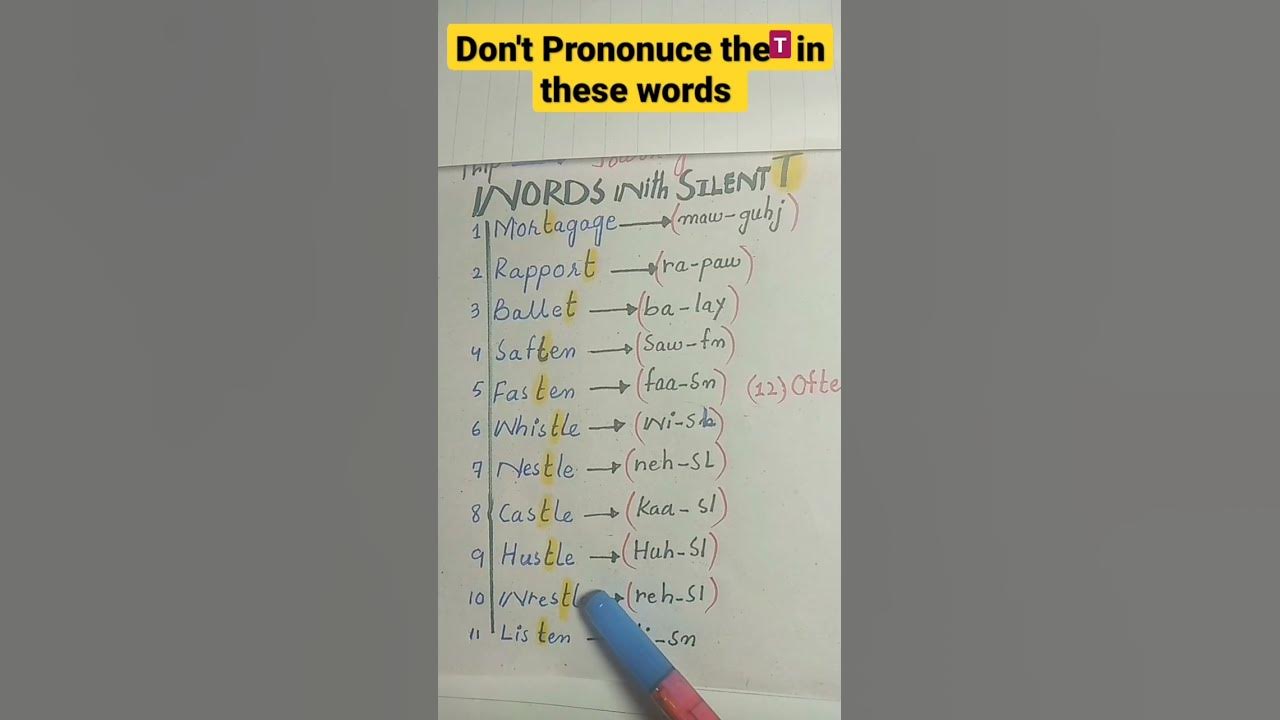 Don't Prononuce the T in
these words
Trip
WORDS With SILENT T
1 Mortagage (maw-guhj)
2 Rapport (ra-paw)
3 Ballet (ba-lay)
4 Saften (Saw-fn)
5 Fasten (faa-Sn) (12) Ofte
6 Whistle (Wi-Sl)
7 Nestle (neh-SL)
8 Castle (Kaa-Sl)
9 Hustle (Huh-Sl)
10 Wrestl (reh-Sl)
11 Listen li-Sn